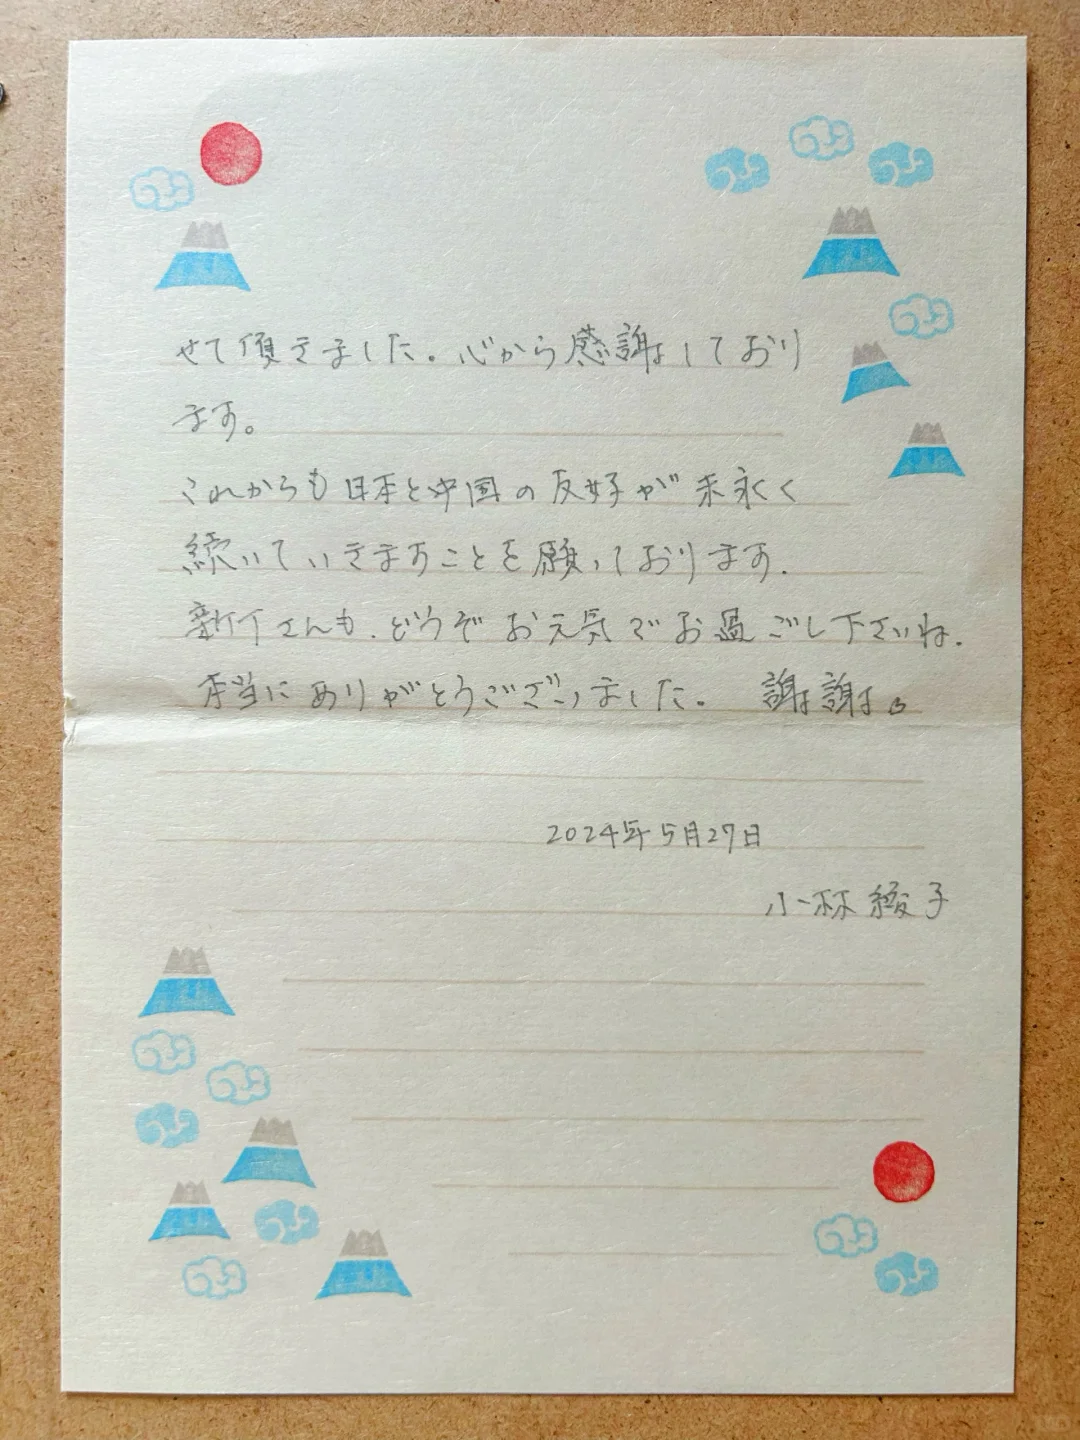 せて頂きました。心から感謝しており
ます。
これからも日本と中国の友好が末永く
続いていきますことを願っております.
さんも、どうぞお元気でお過ごし下さいね.
本当にありがとうございました。 謝謝。
2024年5月27日
小林綾子